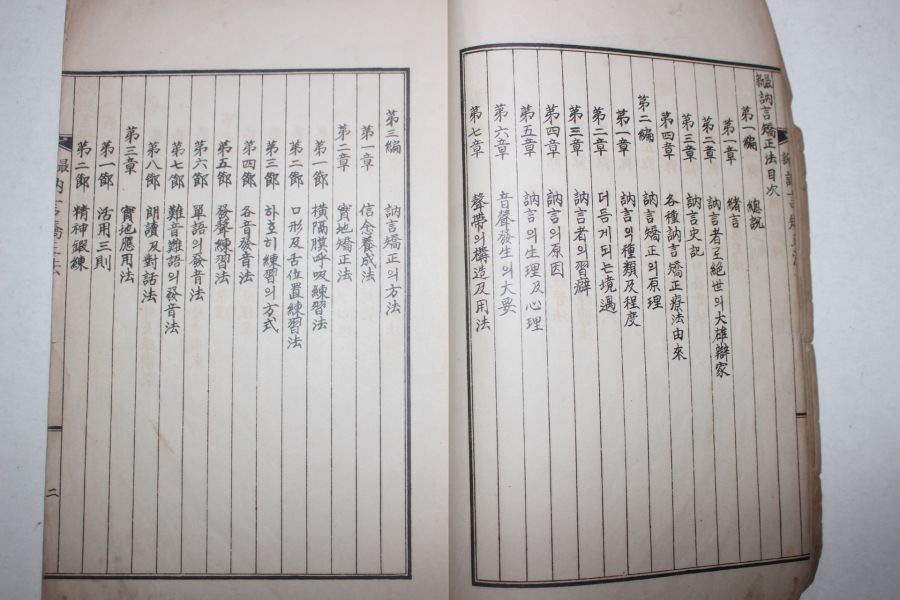 最新訥言矯正法目次
第一編 總說
第一章 緖言
第二章 訥言者로絕世의大雄辯家
第三章 訥言史記
第四章 各種訥言矯正療法由來
第二編 訥言矯正의原理
第一章 訥言의種類及程度
第二章 더듬게되는境遇
第三章 訥言者의習癖
第四章 訥言의原因
第五章 訥言의生理及心理
第六章 音聲發生의大要
第七章 聲帶의構造及用法
第三編 訥言矯正의方法
第一章 信念養成法
第二章 實地矯正法
第一節 橫隔膜呼吸練習法
第二節 口形及舌位置練習法
第三節 하호히練習의方式
第四節 各音發音法
第五節 發聲練習法
第六節 單語의發音法
第七節 難音難語의發音法
第八節 朗讀及對話法
第三章 實地應用法
第一節 活用三則
第二節 精神鍛練
二